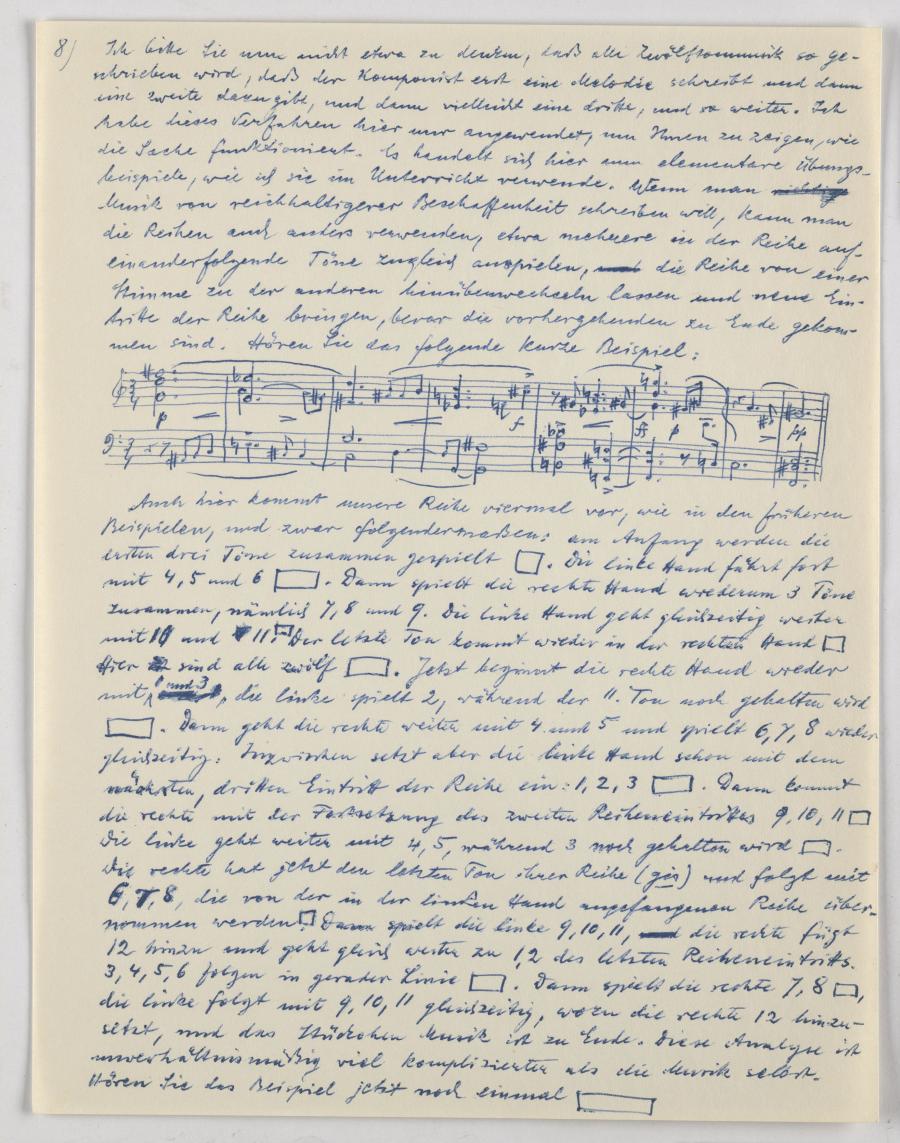 8)
Ich bitte Sie nun nicht etwa zu denken, daß alle Zwölftonmusik so ge-
schrieben wird, daß der Komponist erst eine Melodie schreibt und dann
eine zweite dazugibt, und dann vielleicht eine dritte, und so weiter. Ich
habe dieses Verfahren hier nur angewendet, um Ihnen zu zeigen, wie
die Sache funktioniert. Es handelt sich hier um elementare Übungs-
beispiele, wie ich sie im Unterricht verwende. Wenn man
Musik von reichhaltigerer Beschaffenheit schreiben will, kann man
die Reihen auch anders verwenden, etwa mehrere in der Reihe auf-
einanderfolgende Töne zugleich anspielen, die Reihe von einer
Stimme zu der anderen hinüberwechseln lassen und neue Ein-
tritte der Reihe bringen, bevor die vorhergehenden zu Ende gekom-
men sind. Hören Sie das folgende kurze Beispiel:
p f ff p pp
Auch hier kommt unsere Reihe viermal vor, wie in den früheren
Beispielen, und zwar folgendermaßen: am Anfang werden die
ersten drei Töne zusammen gespielt . Die linke Hand fährt fort
mit 4, 5 und 6 . Dann spielt die rechte Hand wiederum 3 Töne
zusammen, nämlich 7, 8 und 9. Die linke Hand geht gleichzeitig weiter
mit 10 und 11. Der letzte Ton kommt wieder in der rechten Hand
Hier sind alle zwölf . Jetzt beginnt die rechte Hand wieder
mit 1 und 3, die linke spielt 2, während der 11. Ton noch gehalten wird
. Dann geht die rechte weiter mit 4 und 5 und spielt 6, 7, 8 wieder
gleichzeitig. Inzwischen setzt aber die linke Hand schon mit dem
nächsten, dritten Eintritt der Reihe ein: 1, 2, 3 . Dann kommt
die rechte mit der Fortsetzung des zweiten Reiheneintrittes 9, 10, 11
Die linke geht weiter mit 4, 5, während 3 noch gehalten wird .
Die rechte hat jetzt den letzten Ton ihrer Reihe (gis) und folgt mit
6, 7, 8, die von der in der linken Hand angefangenen Reihe über-
nommen werden. Dann spielt die linke 9, 10, 11, die rechte fügt
12 hinzu und geht gleich weiter zu 1, 2 des letzten Reiheneintritts.
3, 4, 5, 6 folgen in gerader Linie . Dann spielt die rechte 7, 8 ,
die linke folgt mit 9, 10, 11 gleichzeitig, wozu die rechte 12 hinzu-
setzt, und das Stückchen Musik ist zu Ende. Diese Analyse ist
unverhältnismäßig viel komplizierter als die Musik selbst.
Hören Sie das Beispiel jetzt noch einmal